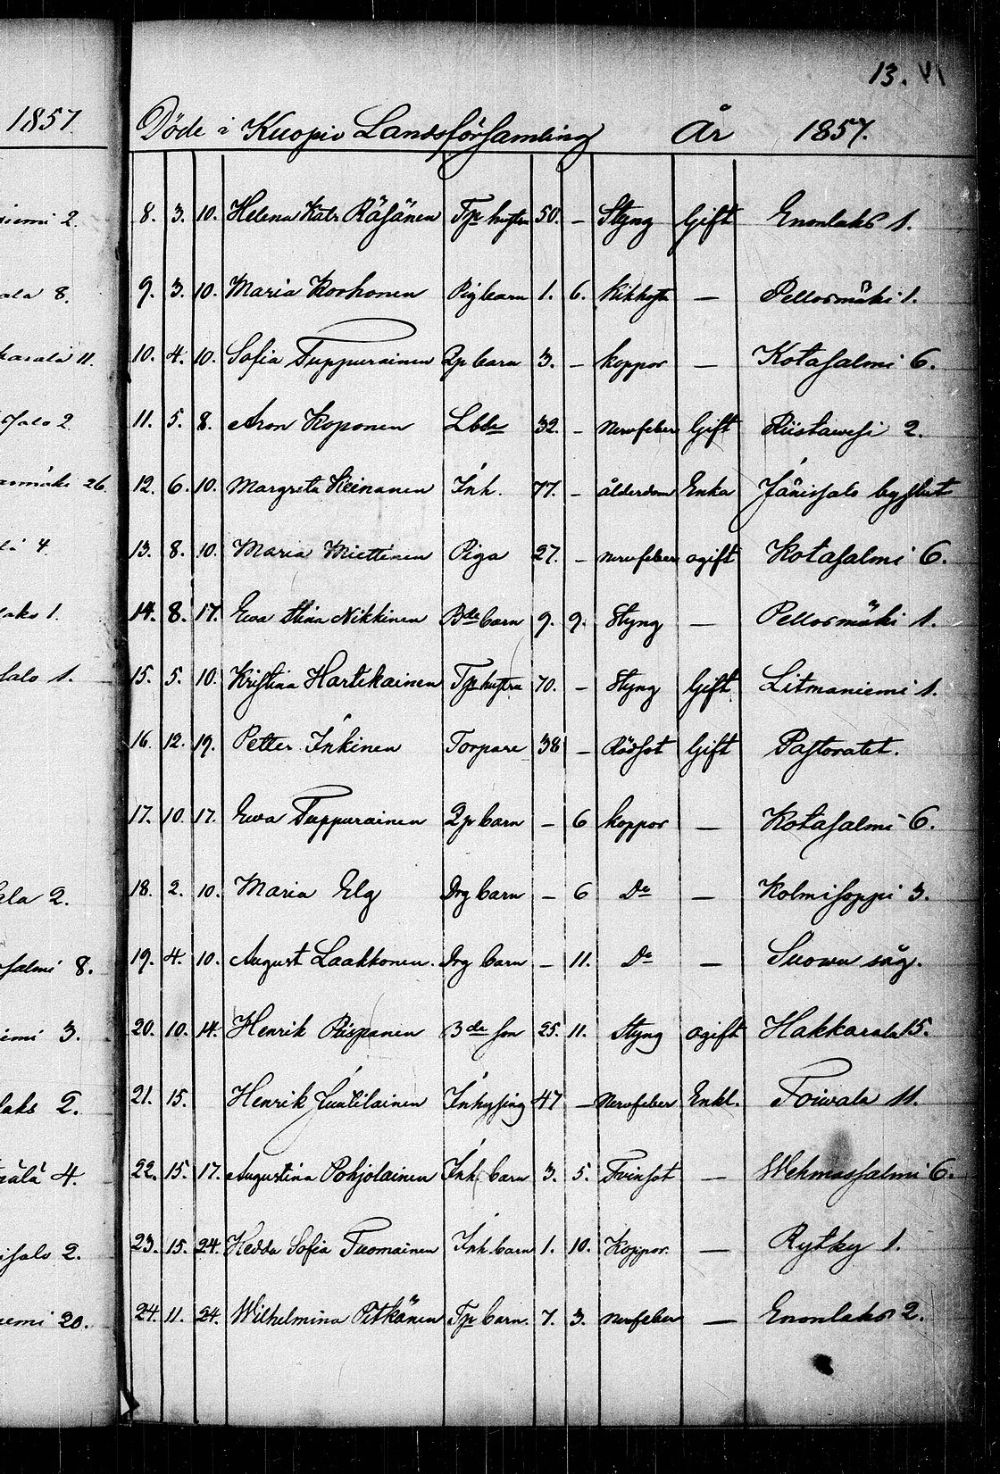 13.
1857.
Döde i Kuopio Landsförsamling År 1857.
8. 3. 10. Helena Katr Räsänen Tp hustru 50. - Styng Gift Enonlaks 1.
9. 3. 10. Maria Korhonen Pig barn 1. 6. Kikhosta — Pellosmäki 1.
10. 4. 10. Sofia Tuppurainen Lp barn 3. - koppor — Kotasalmi 6.
11. 5. 8. Aron Koponen Lbde 32. - Nervfeber Gift Riistawesi 2.
12. 6. 10. Margreta Heinanen Inh. 77. - ålderdom Enka Jänissalo
13. 8. 10. Maria Miettinen Piga 27. - Nervfeber ogift Kotasalmi 6.
14. 8. 17. Ewa Stina Nikkinen Bde barn 9. 9. Styng — Pellosmäki 1.
15. 5. 10. Kristina Hartikainen Tp hustru 70. - Styng Gift Litmaniemi 1.
16. 12. 19. Petter Inkinen Torpare 38 - Rödsot Gift Pastoratet.
17. 10. 17. Ewa Tuppurainen Lp barn - 6 koppor — Kotasalmi 6.
18. 2. 10. Maria Elg Drg barn - 6 Do — Kolmisoppi 3.
19. 4. 10. August Laakkonen. Drg barn - 11. Do — Suowu såg.
20. 10. 14. Henrik Piispanen Bde son 25. 11. Styng ogift Hakkarala 15.
21. 15. Henrik Juutilainen Inhysing 47 - Nervfeber Enkl. Toiwala 11.
22. 15. 17. Augustina Pohjolainen Inh. barn 3. 5. Tvinsot — Wehmassalmi 6.
23. 15. 24. Hedda Sofia Tuomainen Inh. barn 1. 10. Koppor. — Rytky 1.
24. 11. 24. Wilhelmina Pitkänen Tp barn. 7. 3. Nerffeber — Enonlaks 2.